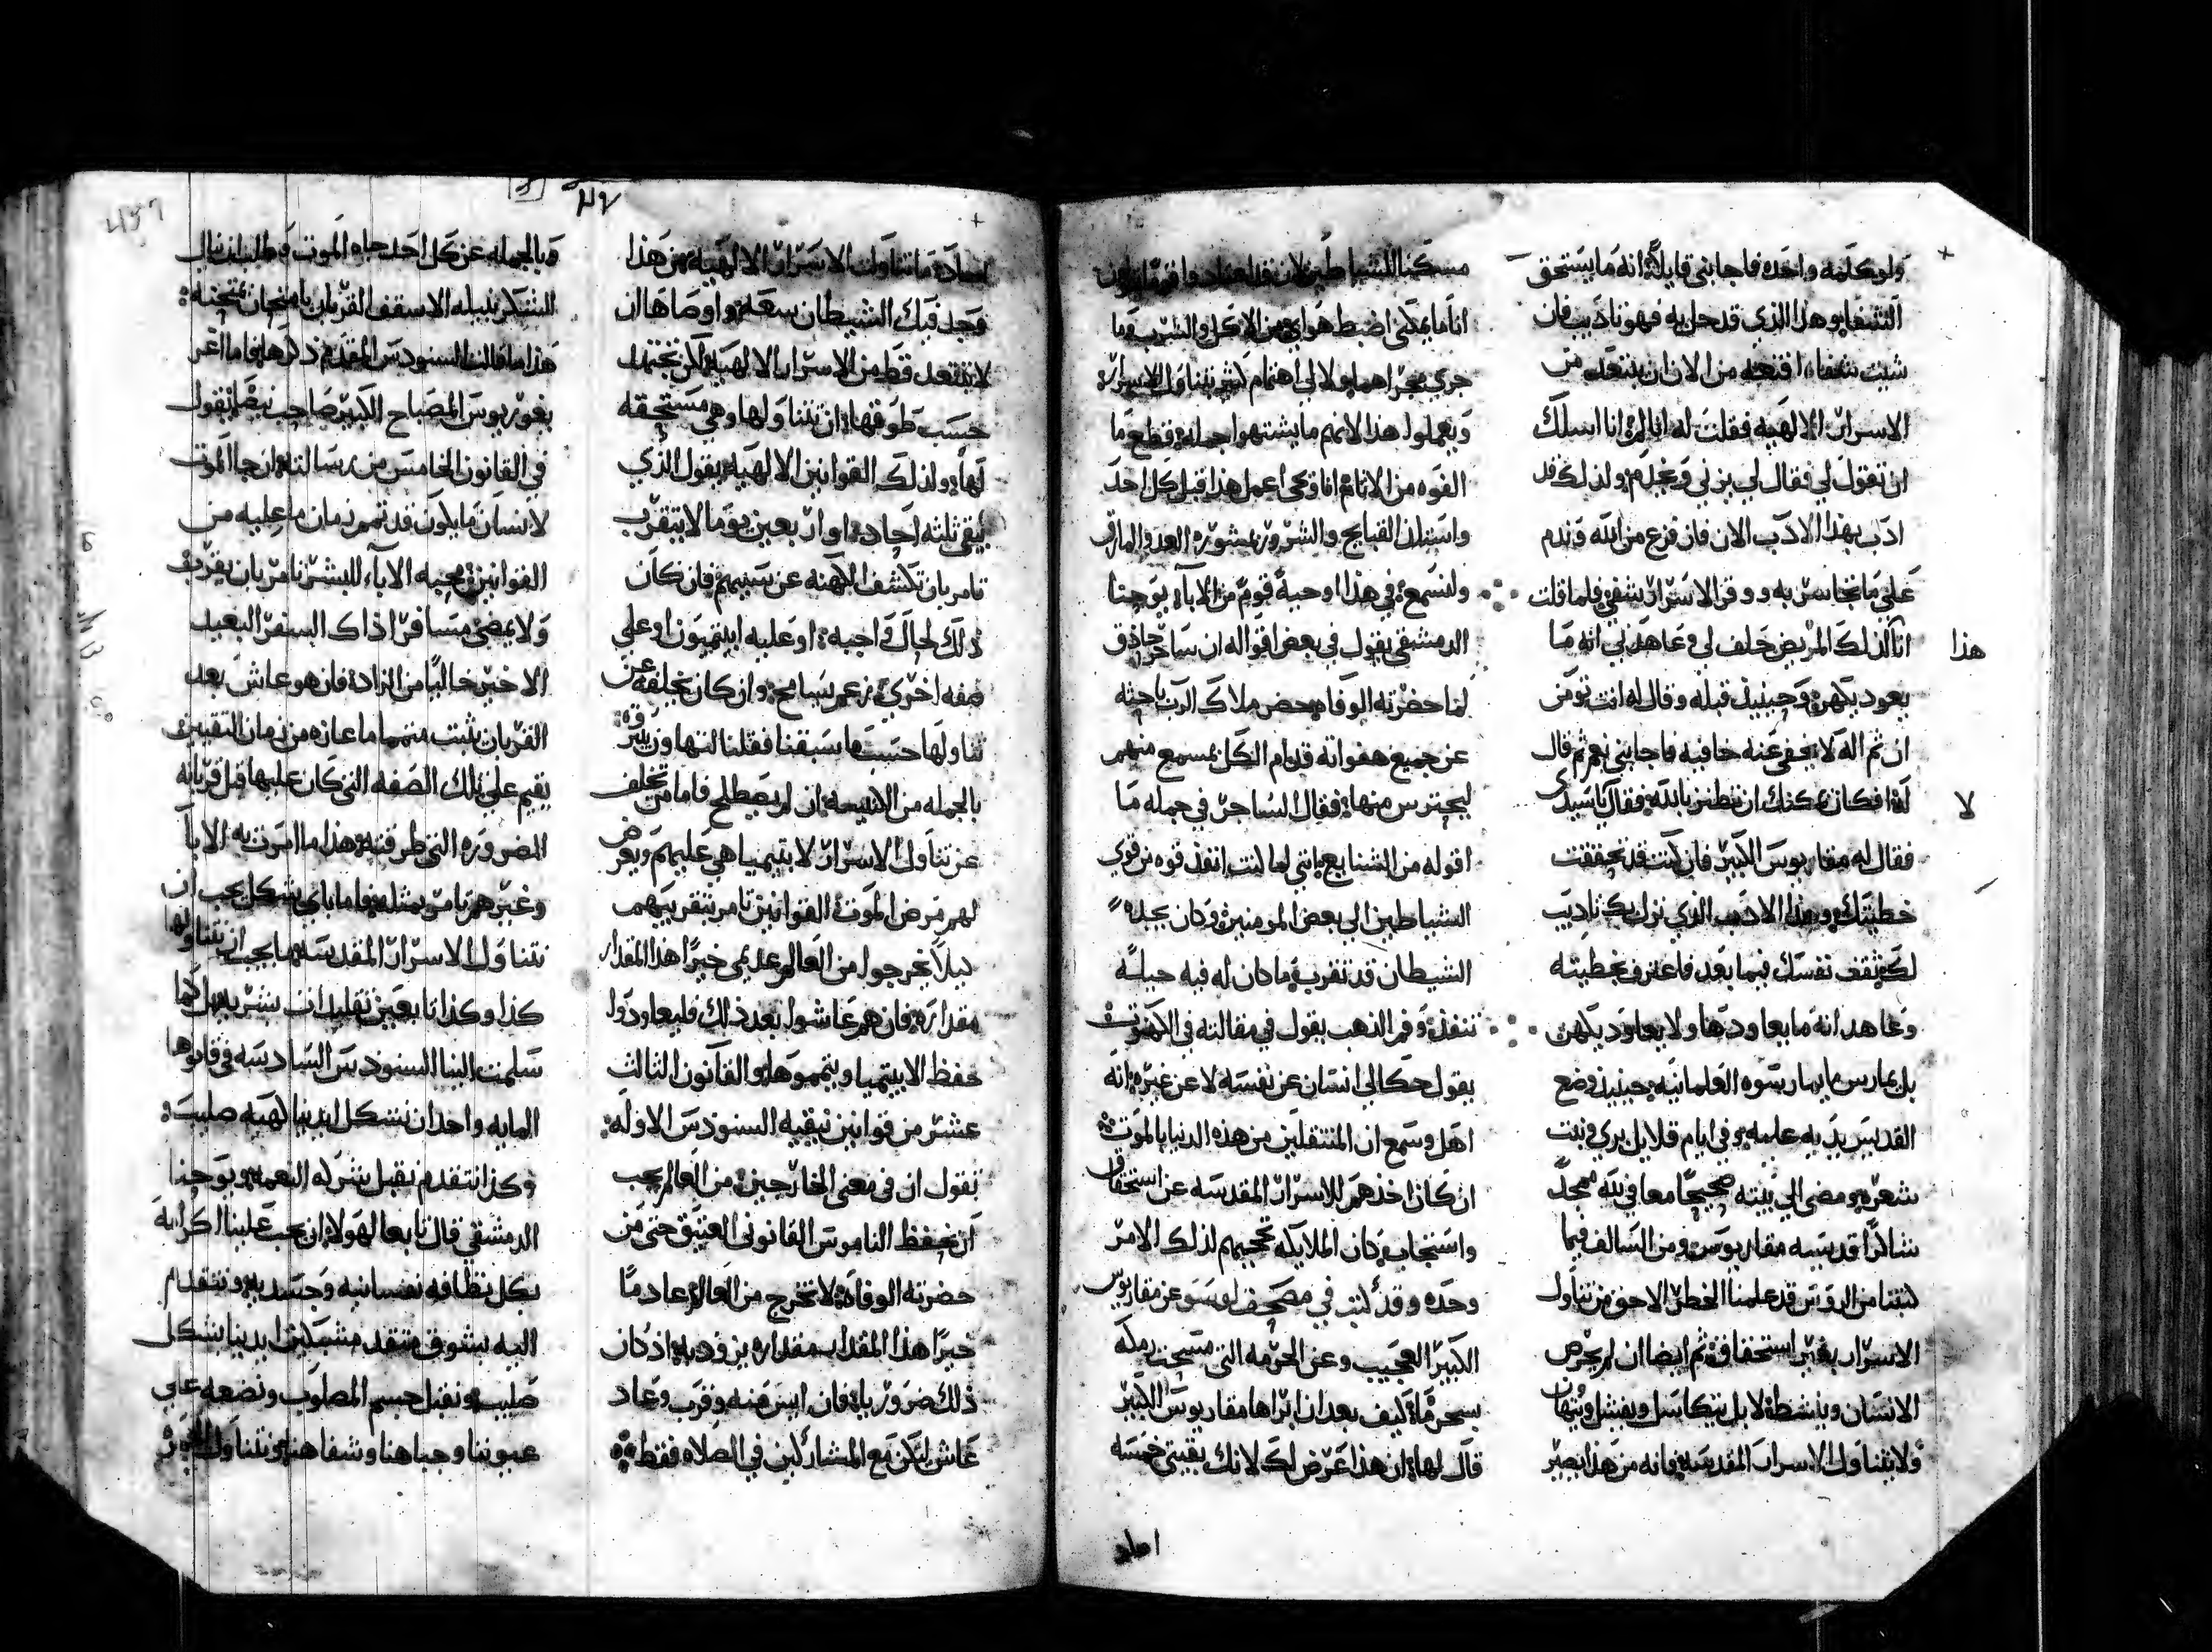 ولو كلمه واحده فاجابني قايلا انه ما يستحق
الشفا وهذا الذي قد حل به فهو تاديب فان
شيت شفاه اقنعه من الان ان يبتعد من
الاسرار الالهيه فقلت له انا انا اسلك
ان تقول لي فقال لي يزني ويخدم ولذلك قد
ادب بهذا الادب الان فان فزع من الله وندم
علي ما تجاسر به ووقر الاسرار شفي فلما قلت
انا لذلك المريض حلف لي وعاهدني انه ما
هذا
يعود يكهن وحينيذ قبله وقال له انت تومن
ان ثم اله لا يخفي عنه خافيه فاجابني نعم ثم قال
له افكان يمكنك ان تطنز بالله فقال يا سيدي
لا
فقال له مقاريوس الكبير فان كنت قد تحققت
خطيتك وهذا الادب الذي نزل بك تاديب
لك ثقف نفسك فيما بعد فاعترف بخطيته
وعاهد انه ما يعاودها ولا يعاود يكهن
بل يمارس ما يمارسوه العلمانيه حينيذ وضع
القديس يديه عليه وفي ايام قلايل بري ونبت
شعره ومضي الي بيته صحيحا معافي لله ممجدا
شاكرا قديسه مقاريوس ومن السالف فيما
كتبنا من الروس قد علمنا الخطر الاحق من تناول
الاسرار بغير استحقاق ثم ايضا ان لم يحرص
الانسان وينشط لا بل يتكاسل ويفشل ويتهان
ولا يتناول الاسرار المقدسه فانه من هذا يصير
مسكنا للشياطين لان قد اعتادوا قوما يقولون
انا ما يمكني اضبط هواي من الاكل والشرب وما
جري مجراهما ولا لي اهتمام لشي يتناول الاسرار
ويعملوا هذا لانهم ما يشتهوا جمله قطع ما
القوه من الاثام انا وحي اعمل هذا قبل كل احد
واستلذ القبايح والشرور بمشوره العدو المارق
ولنسمع في هذا اوحية قوم من الابآ يوحنا
الدمشقي يقول في بعض اقواله ان ساحر حاذق
لما حضرته الوفاه حضر ملاك الرب باحثه
عن جميع هفواته قدام الكل بمسمع منهم
ليحترس منها فقال الساحر في جمله ما
اقوله من الشنايع انني لما كنت انفذ قوه من قوي
الشياطين الي بعض المومنين وكان يجده
الشيطان قد تقرب ما كان له فيه حيله
تنفذ وفم الذهب يقول في مقالته في الكهنوت
يقول حكا لي انسان عن نفسه لا عن غيره انه
اهل وسمع ان المنتقلين من هذه الدنيا بالموت
ان كان اخذهم للاسرار المقدسه عن استحقاق
واستجاب كان الملايكه تحجبهم لذلك الامر
وحده وقد كتب في مصحف لوسو عن مقاريوس
الكبير العجيب وعن الحرمه التي مسحت رمكه
بسحر ما كيف بعد ان ابراها مقاريوس الكبير
قال لها ان هذا عرض لك لانك بقيتي خمسه
احاد
احاد ما تناولت الاسرار الالهيه من هذا
وجد فيك الشيطان سعه واوصاها ان
لا تبتعد قط من الاسرار الالهيه لكن تجتهد
حسب طوقها ان تتناولها وهي مستحقه
لها ولذلك القوانين الالهيه يقول الذي
يبقي ثلثه احاد او اربعين يوما لا يتقرب
تامر بان تكشف الكهنه عن سببهم فان كان
ذلك لحال واجبه او عليه ابيتميون او علي
صفه اخري نزعم سامح وان كان تخلفه عن
تناولها حسب ما سبقنا فقلنا لتهاون يفرق
بالجمله من الانيسه ان لم يصطلح فاما من تخلف
عن تناول الاسرار لابيتيميا هي عليهم ويعرض
لهم مرض الموت القوانين تامر بتقريبهم
ليلا يخرجوا من العالم عديمي خيرا هذا المقدار
مقداره فان هم عاشوا بعد ذلك فليعاودوا
حفظ الابيتيميا ويتمموها والقانون الثالث
عشر من قوانين نيقيه السنودس الاوله
تقول ان في معني الخارجين من العالم يجب
ان يحفظ الناموس القانوني العتيق حتي من
حضرته الوفاه لا تخرج من العالم عادما
خيرا هذا المقدار مقداره يزود به اذ كان
ذلك ضروريا فان ايس منه وقرب وعاد
عاش ليكن مع المشاركين في الصلاه فقط
وبالجمله عن كل احد جاه الموت وطلب ان ينال
الشكر ينيله الاسقف القربان بامتحان يمتحنه
هذا ما قالت السنودس المقدم ذكرها فاما اغر
يغوريوس المصباح الكبير صاحب نيصص يقول
في القانون الخامس من رسالته ان جا الموت
لانسان ما يكون قد تمم زمان ما عليه من
القوانين محبه الآباء للبشر تامر بان يقرب
ولا يمضي مسافرا ذاك السفر البعيد
الاخير خاليا من الزاده فان هو عاش بعد
القربان يثبت متمما ما عازه من زمان التقنين
يقيم علي تلك الصفه التي كان عليها قبل قربانه
الضروره التي طرقته هذا ما امرت به الابآ
وغيرهم تامر بمثله فاما باي شكل يجب ان
نتناول الاسرار المقدسه ما يجب ان نتناولها
كذا وكذا تابعين تقليدات بشريه بل كما
سلمت الينا السنودس السادسه في قانونها
المايه واحد ان نشكل ايدينا لهيه صليب
وكذا نتقدم نقبل شركه النعمه ويوحنا
الدمشقي قال تابعا لهولا ان يجب علينا اكرامه
بكل نظافه نفسانيه وجسديه ونتقدم
اليه بشوق متقد مشبكين ايدينا بشكل
صليب ونقبل جسم المصلوب ونضعه علي
عيوننا وجباهنا وشفاهنا ونتناول الجمره